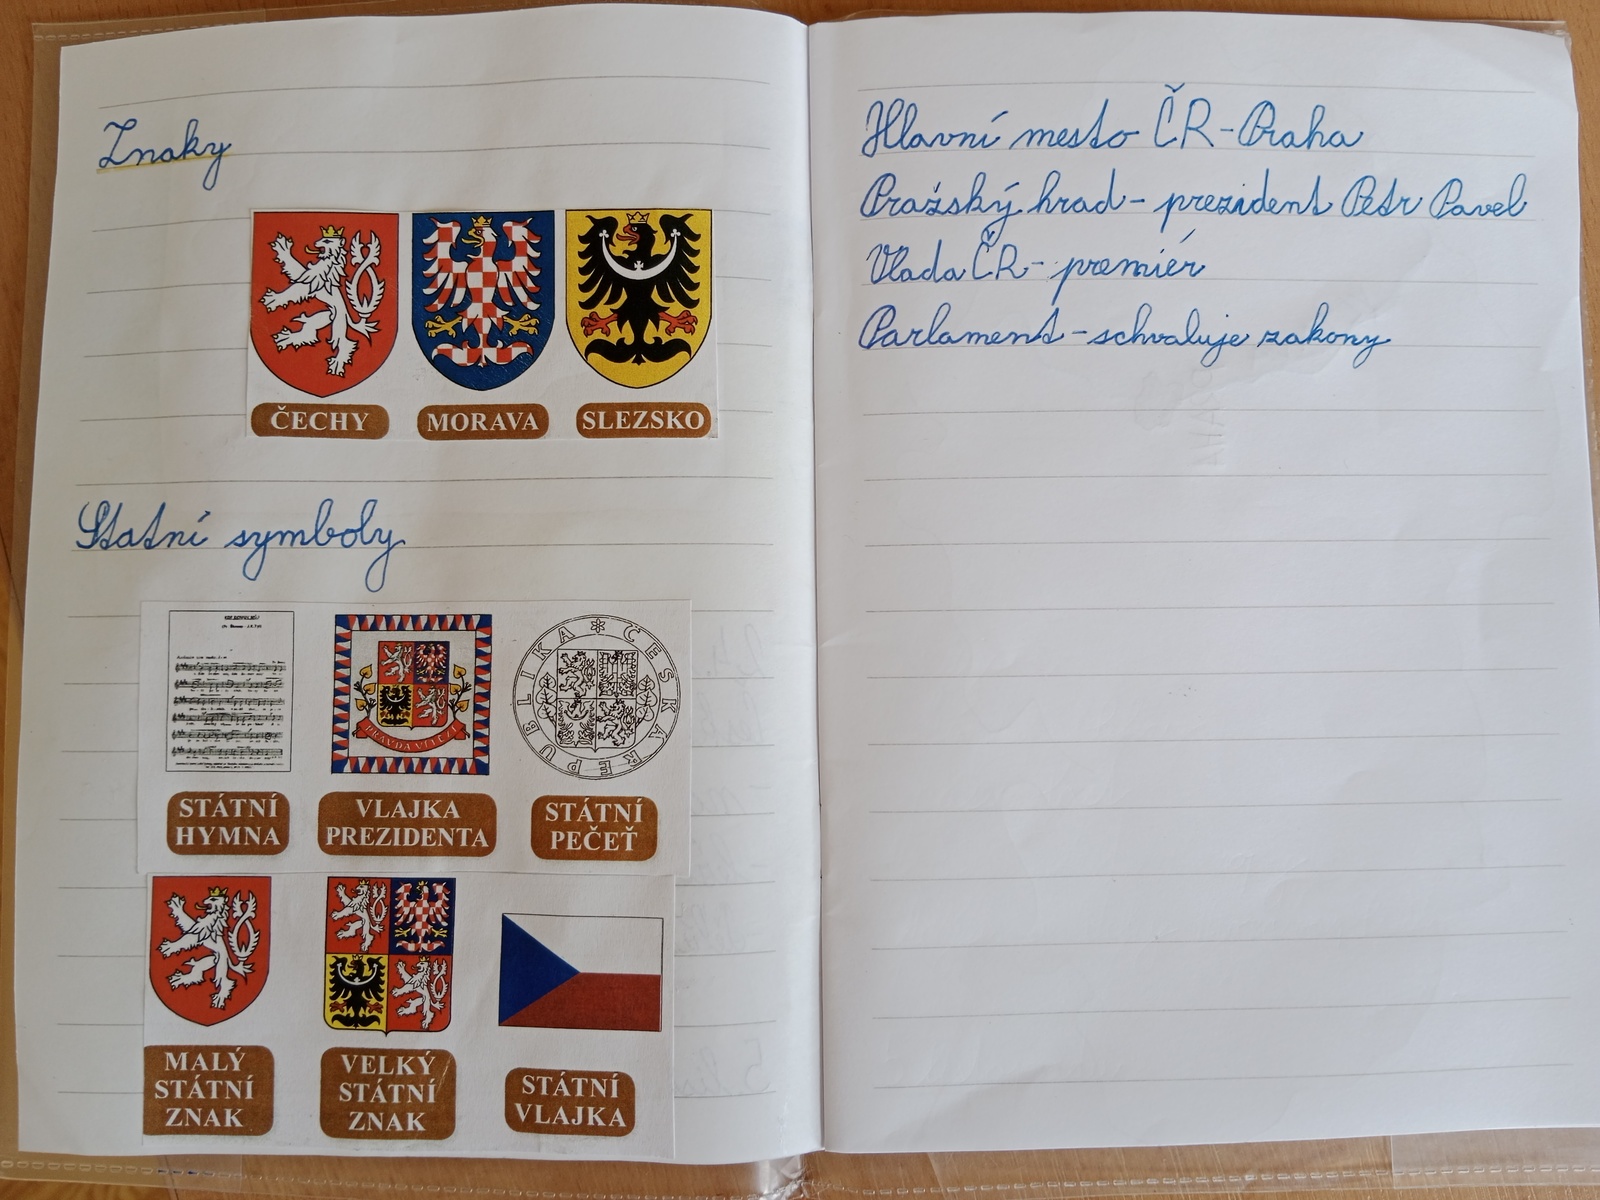 Znaky
ČECHY
MORAVA
SLEZSKO
Statní symboly
ČESKÁ REPUBLIKA
PRAVDA VÍTĚZÍ
STÁTNÍ
HYMNA
VLAJKA
PREZIDENTA
STÁTNÍ
PEČEŤ
MALÝ
STÁTNÍ
ZNAK
VELKÝ
STÁTNÍ
ZNAK
STÁTNÍ
VLAJKA
Hlavní mesto ČR - Praha
Pražský hrad - prezident Petr Pavel
Vlada ČR - premiér
Parlament - schvaluje zakony